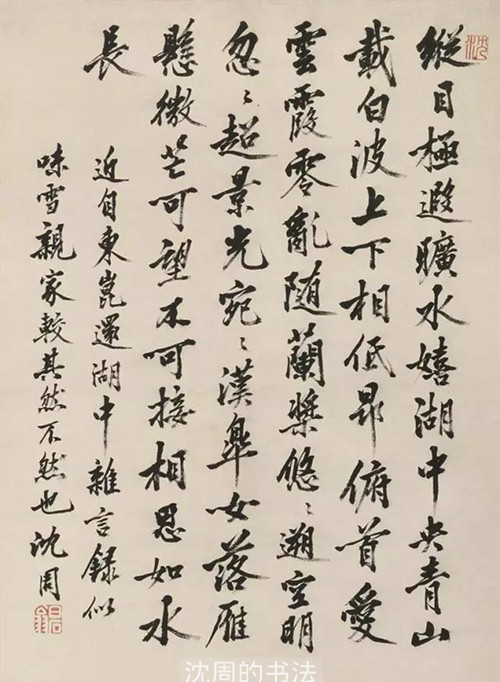 縱目極遐曠水嬉湖中央青山
載白波上下相低昂俯首愛
雲霞零亂隨蘭槳悠〻遡空明
忽〻超景光宛〻漢皐女落雁
懸微芒可望不可接相思如水
長
近自東崑還湖中雜言録似
味雪親家較其然不然也沈周
沈周的书法